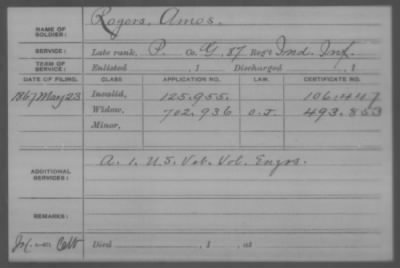 NAME OF SOLDIER: Rogers, Amos.
SERVICE: Late rank, P. Co. G, 87 Reg't Ind. Inf.
TERM OF SERVICE: Enlisted , 1 Discharged , 1
DATE OF FILING. CLASS. APPLICATION NO. LAW. CERTIFICATE NO.
1867 May 23 Invalid, 125.955. 106.447
Widow, 702,936 O.J. 493.853
Minor,
ADDITIONAL SERVICES: A. 1. U.S. Vet. Vol. Engrs.
REMARKS:
Died , 1 , at